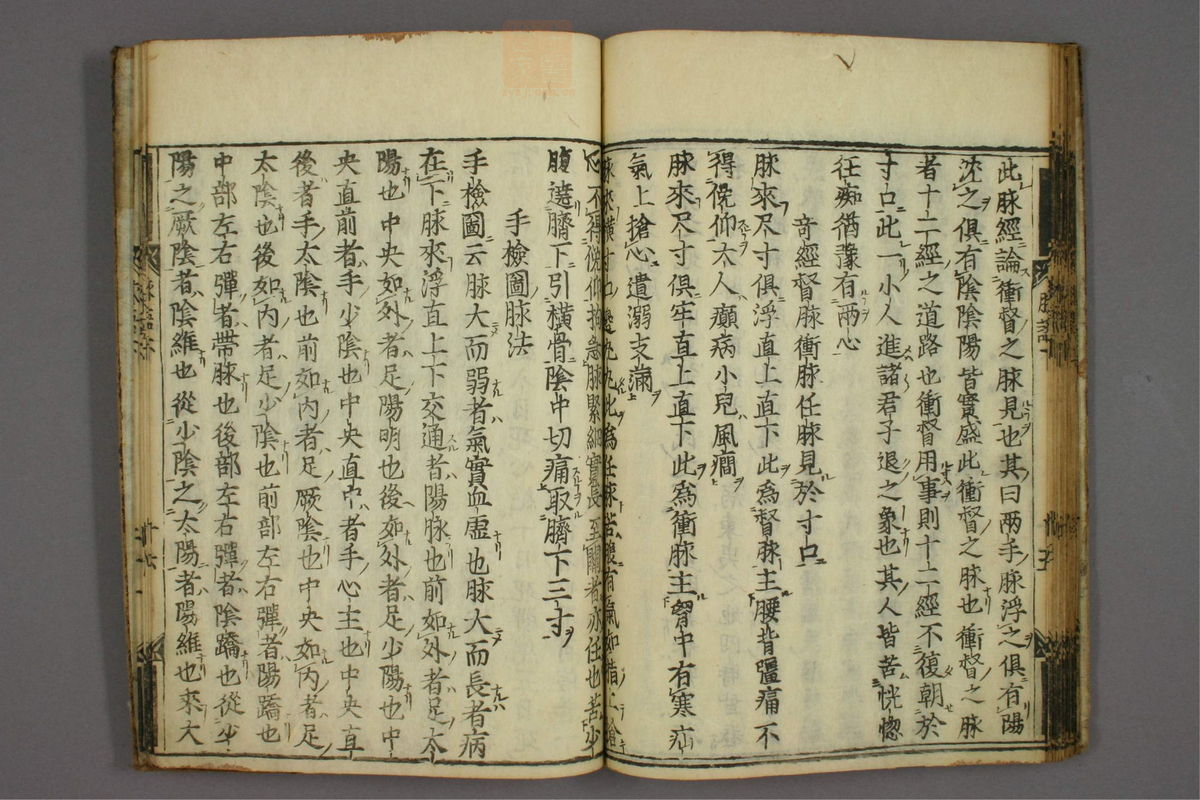 此脉經論衝督之脉見也其曰兩手脉浮之俱有陽
沈之俱有陰陰陽皆實盛此衝督之脉也衝督之脉
者十二經之道路也衝督用事則十二經不復朝於
寸口此一小人進諸君子退之象也其人皆苦恍惚
狂痴猶豫有兩心
奇經督脉衝脉任脉見於寸口
脉來尺寸俱浮直上直下此為督脉主腰背彊痛不
得俛仰大人癲病小兒風癎
脉來尺寸俱牢直上直下此為衝脉主胷中有寒疝
氣上搶心遺溺支滿
脉來橫寸口邊丸丸此為任脉苦腹有氣如指上搶
心不得俛仰拘急脉緊細實長至關者亦任也苦少
腹遶臍下引橫骨陰中切痛取臍下三寸
手檢圖脉法
手檢圖云脉大而弱者氣實血虛也脉大而長者病
在下脉來浮直上下交通者陽脉也前如外者足太
陽也中央如外者足陽明也後如外者足少陽也中
央直前者手少陰也中央直中者手心主也中央直
後者手太陰也前如內者足厥陰也中央如內者足
太陰也後如內者足少陰也前部左右彈者陽蹻也
中部左右彈者帶脉也後部左右彈者陰蹻也從少
陽之厥陰者陰維也從少陰之太陽者陽維也來大